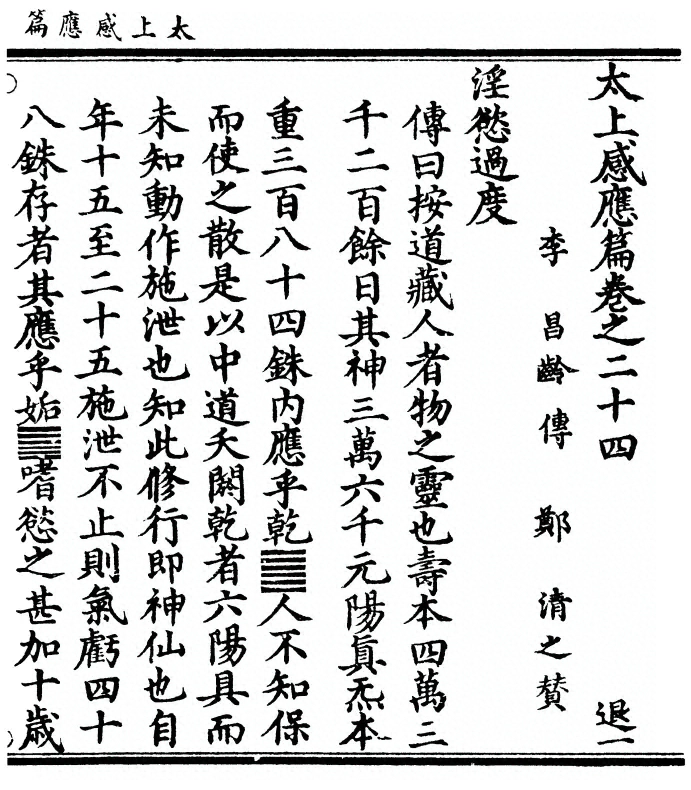 太上感應篇
太上感應篇卷之二十四 退一
李昌齡傳 鄭清之贊
淫慾過度
傳曰按道藏人者物之靈也壽本四萬三
千二百餘日其神三萬六千元陽真炁本
重三百八十四銖內應乎乾䷀人不知保
而使之散是以中道夭閼乾者六陽具而
未知動作施泄也知此修行即神仙也自
年十五至二十五施泄不止則氣虧四十
八銖存者其應乎姤䷫嗜慾之甚加十歲